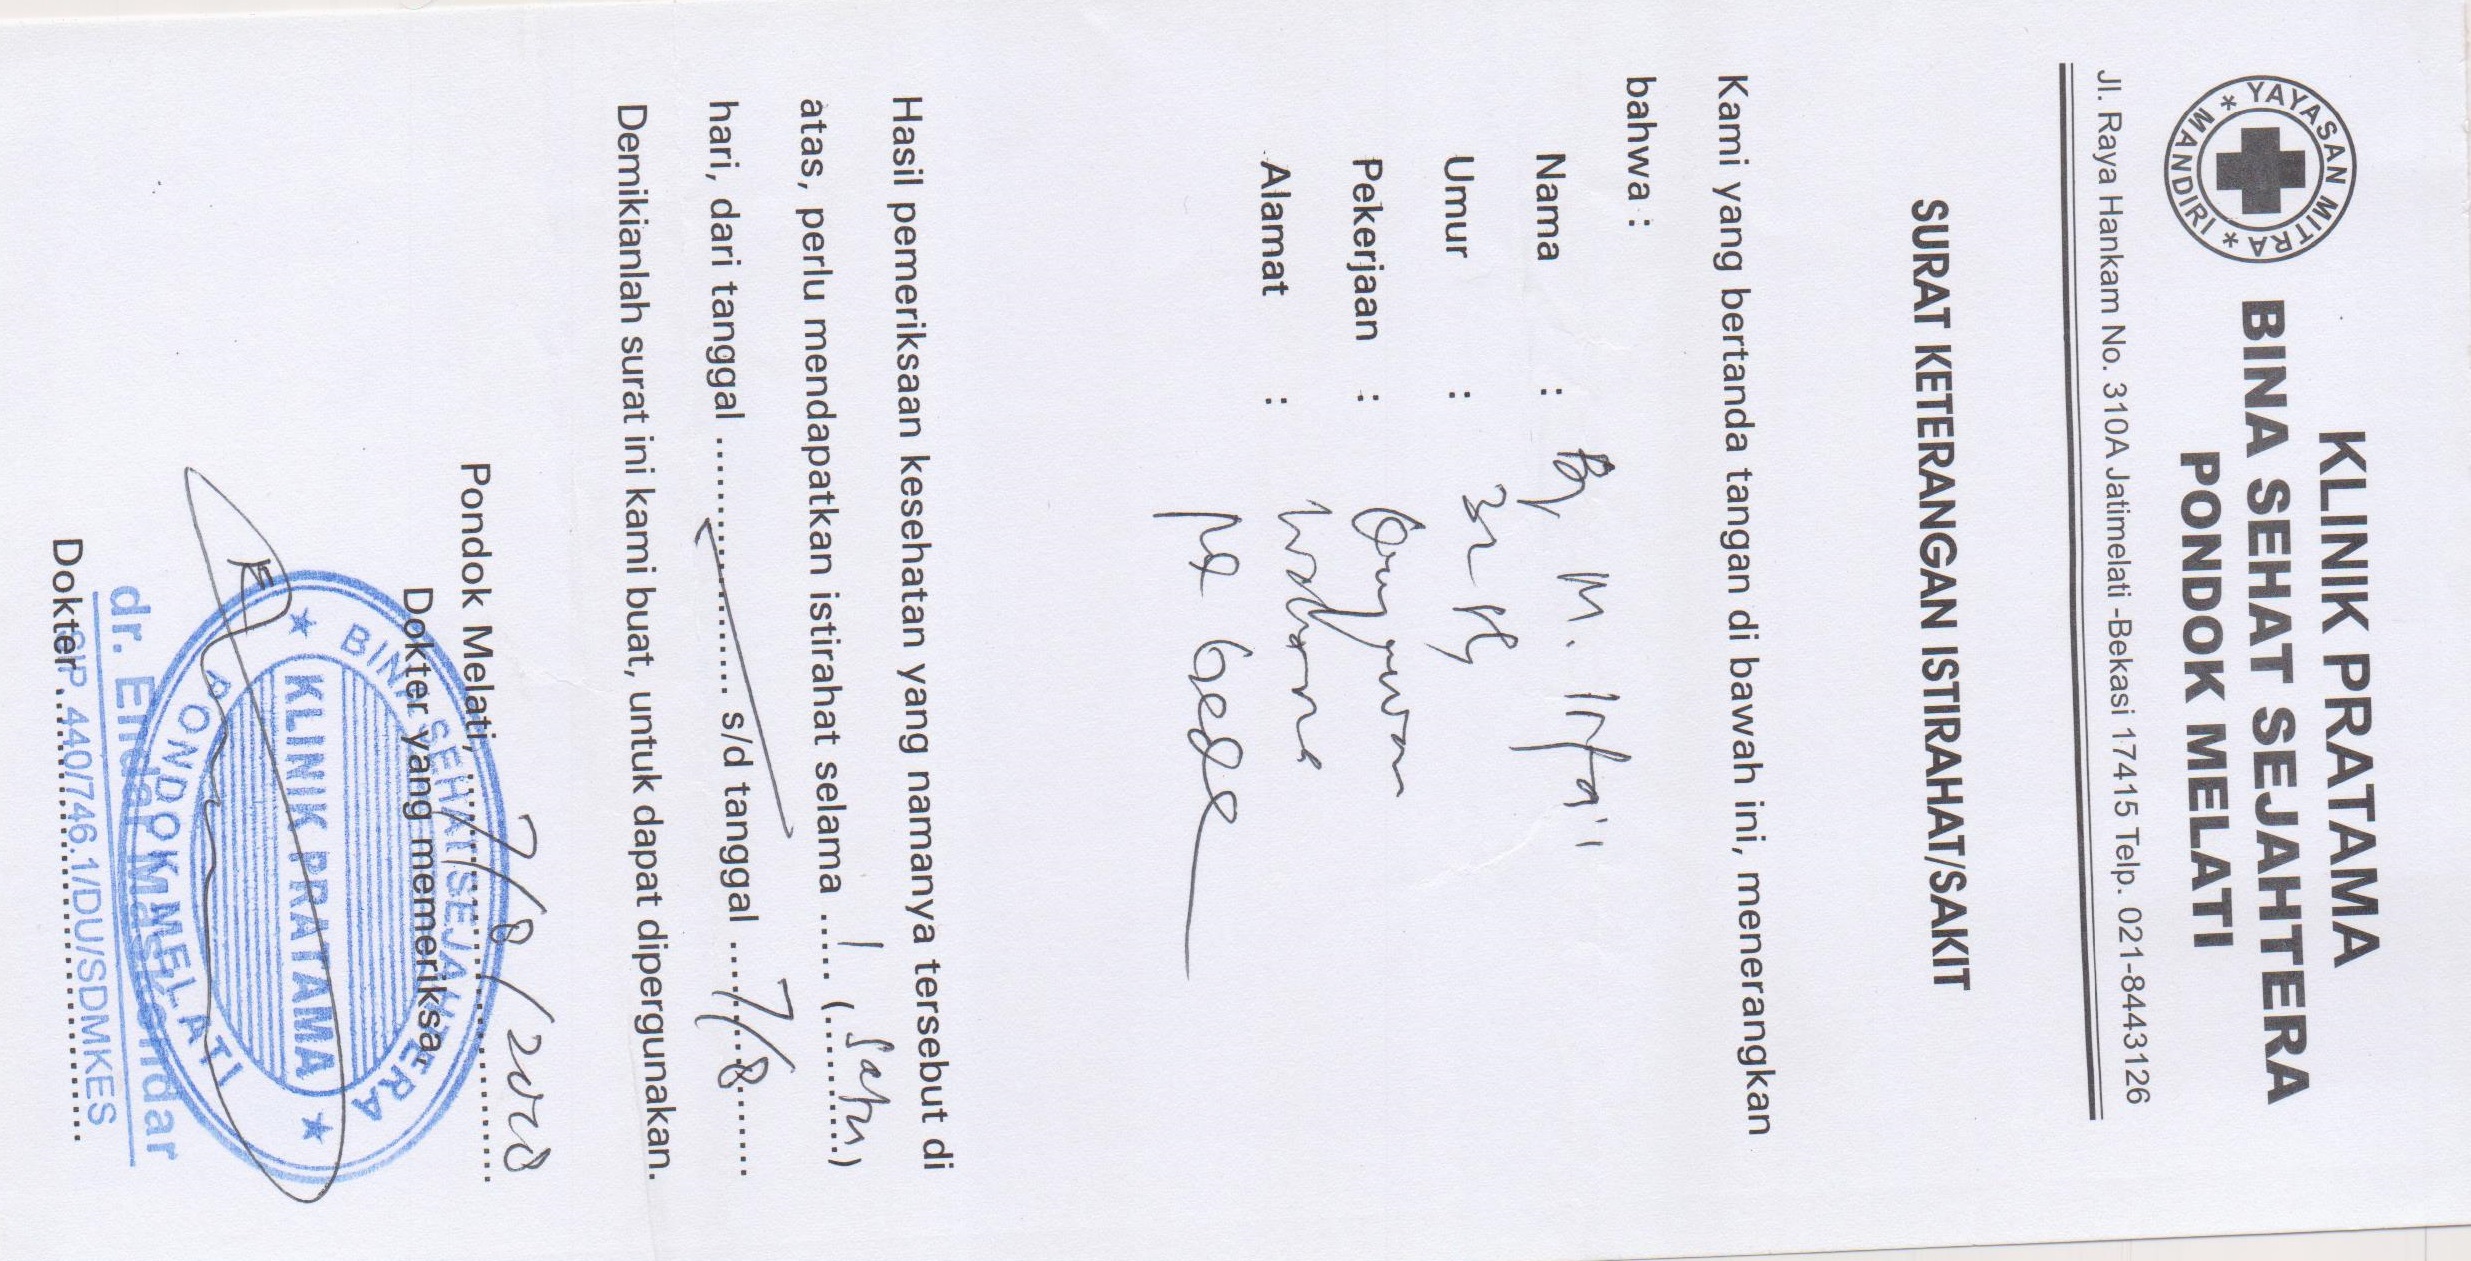 YAYASAN MITRA * MANDIRI *
KLINIK PRATAMA
BINA SEHAT SEJAHTERA
PONDOK MELATI
Jl. Raya Hankam No. 310A Jatimelati -Bekasi 17415 Telp. 021-8443126
SURAT KETERANGAN ISTIRAHAT/SAKIT
Kami yang bertanda tangan di bawah ini, menerangkan
bahwa :
Nama : M. Irfa'i
Umur :
Pekerjaan :
Alamat :
Gede
Hasil pemeriksaan kesehatan yang namanya tersebut di
atas, perlu mendapatkan istirahat selama ..... 1 ..... (.. Satu ..)
hari, dari tanggal .................... s/d tanggal ..... 7/8 .....
Demikianlah surat ini kami buat, untuk dapat dipergunakan.
Pondok Melati, ..... 7/8/2018 .....
Dokter yang memeriksa,
BINA SEHAT SEJAHTERA
KLINIK PRATAMA
PONDOK MELATI
dr. Endar
SIP 440/746.1/DU/SDMKES
Dokter ........................................